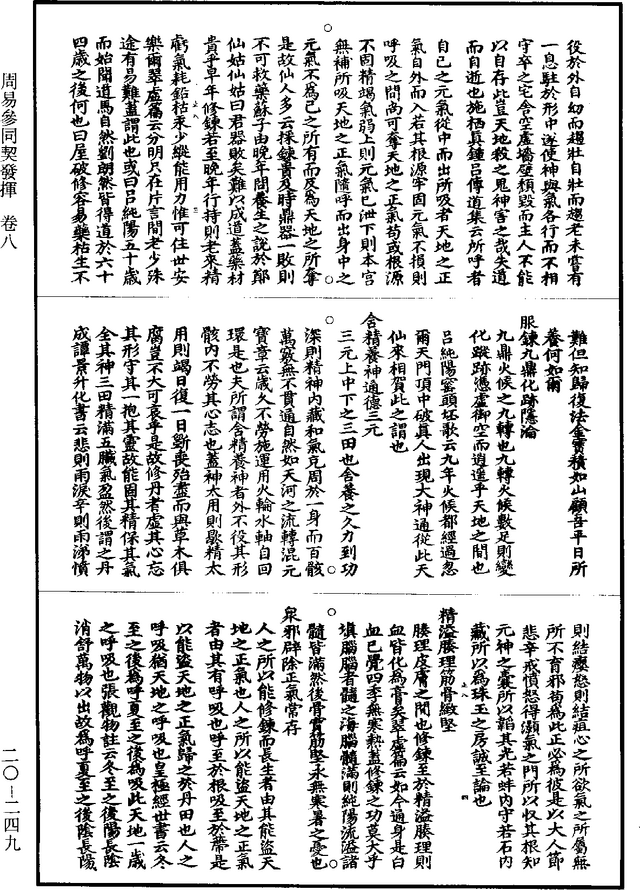 周易參同契發揮 卷八
役於外自幼而趨壯自壯而趨老未嘗有
一息駐於形中遂使神與氣各行而不相
守卒之宅舍空虛墻壁頹毀而主人不能
以自存此豈天地殺之鬼神害之哉失道
而自逝也施栖真鍾呂傳道集云所呼者
自己之元氣從中而出所吸者天地之正
氣自外而入若其根源牢固元氣不損則
呼吸之間尚可奪天地之正氣苟或根源
不固精竭氣弱上則元氣已泄下則本宮
無補所吸天地之正氣隨呼而出身中之
元氣不為己之所有而反為天地之所奪
是故仙人多云採鍊貴及時鼎器一敗則
不可救藥蘇子由晚年問養生之說於鄭
仙姑仙姑曰君器敗矣難以成道蓋藥材
貴乎早年修鍊若至晚年行持則老來精
虧氣耗鉛枯汞少縱能用力惟可住世安
樂爾翠虛篇云分明只在片言間老少殊
途有易難蓋謂此也或曰呂純陽五十歲
而始聞道馬自然劉朗然皆得道於六十
四歲之後何也曰屋破修容易藥枯生不
難但知歸復法金寶積如山顧吾平日所
養何如爾
服鍊九鼎化跡隱淪
九鼎火候之九轉也九轉火候數足則變
化蹤跡憑虛御空而逍遙乎天地之間也
呂純陽窰頭坯歌云九年火候都經過忽
爾天門頂中破真人出現大神通從此天
仙來相賀此之謂也
含精養神通德三元
三元上中下之三田也含養之久力到功
深則精神內藏和氣充周於一身而百骸
萬竅無不貫通自然如天河之流轉混元
寶章云歲久不勞施運用火輪水軸自回
環是也夫所謂含精養神者外不役其形
骸內不勞其心志也蓋神太用則歇精太
用則竭日復一日斲喪殆盡而與草木俱
腐豈不大可哀乎是故修丹者虛其心忘
其形守其一抱其靈故能固其精保其氣
全其神三田精滿五臟氣盈然後謂之丹
成譚景升化書云悲則雨淚辛則雨涕憤
則結癭怒則結疽心之所欲氣之所屬無
所不育邪苟為此正必為彼是以大人節
悲辛戒憤怒得灝氣之門所以收其根知
元神之囊所以韜其光若蚌內守若石內
藏所以為珠玉之房誠至論也
精溢腠理筋骨緻堅
腠理皮膚之間也修鍊至於精溢腠理則
血皆化為膏矣翠虛篇云如今通身是白
血已覺四季無寒熱蓋修鍊之功莫大乎
填腦腦者髓之海腦髓滿則純陽流溢諸
髓皆滿然後骨實筋堅永無寒暑之憂也
衆邪辟除正氣常存
人之所以能修鍊而長生者由其能盜天
地之正氣也人之所以能盜天地之正氣
者由其有呼吸也呼至於根吸至於蒂是
以能盜天地之正氣歸之於丹田也人之
呼吸猶天地之呼吸也皇極經世書云冬
至之後為呼夏至之後為吸此天地一歲
之呼吸也張觀物註云冬至之後陽長陰
消舒萬物以出故為呼夏至之後陰長陽
二〇—二四九